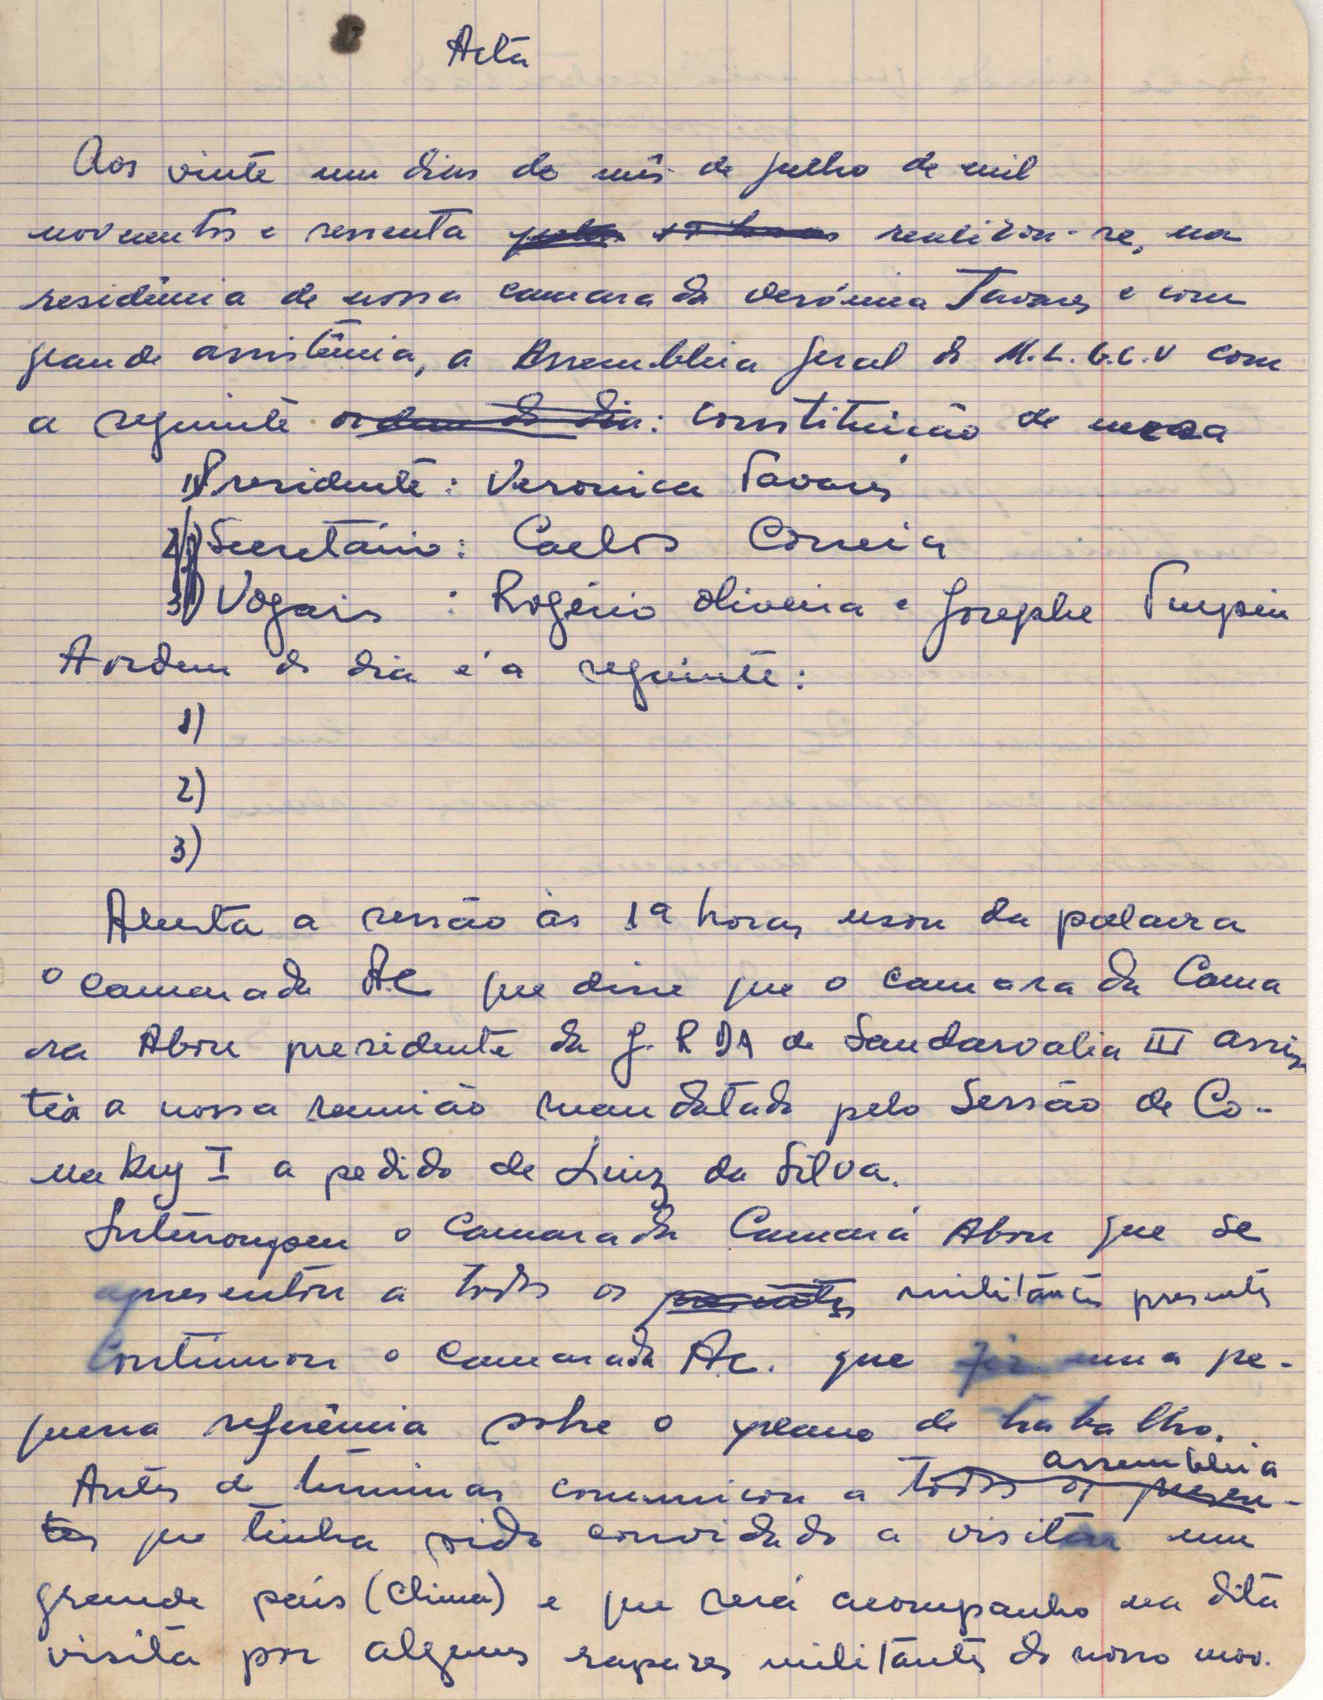 Acta
Aos vinte um dias do mês de julho de mil
novecentos e sessenta realizou-se, na
residência de nossa camarada Verónica Tavares e com
grande assistência, a Assembleia Geral do M.L.G.C.V com
a seguinte ordem do dia: Constituição de mesa
1) Presidente: Veronica Tavares
2) Secretário: Carlos Correia
3) Vogais : Rogério Oliveira e Josephe Turpin
A ordem do dia é a seguinte:
1)
2)
3)
Aberta a sessão às 19 horas usou da palavra
o camarada A.C que disse que o camarada Cama
ra Abou presidente da J. R DA de Sandarvalia III assis
tia a nossa reunião mandatado pelo Sessão de Co-
nakry I a pedido de Luiz da Silva.
Interrompeu o camarada Camará Abou que se
apresentou a todos os presentes militantes presentes
Continuou o camarada A.C. que fez uma pe-
quena referência sobre o plano de trabalho.
assembleia
Antes de terminar comunicou a todos os presen-
tes que tinha sido convidado a visitar um
grande país (China) e que será acompanho na dita
visita por alguns rapazes militantes do nosso mov.